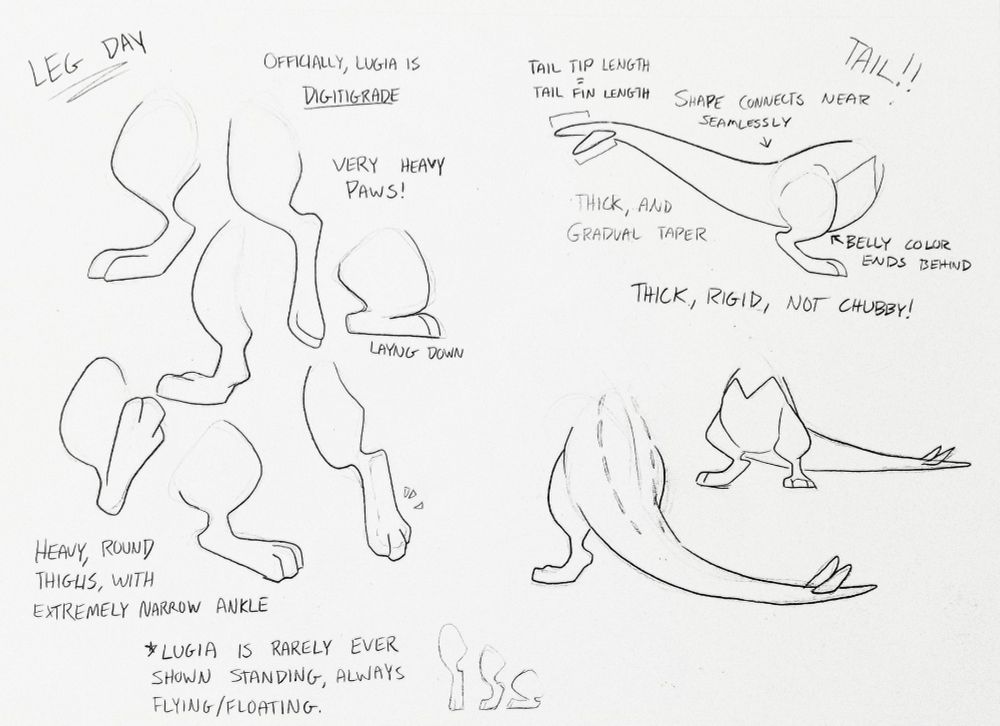 LEG DAY
OFFICIALLY, LUGIA IS
DIGITIGRADE
VERY HEAVY
PAWS!
LAYNG DOWN
HEAVY, ROUND
THIGHS, WITH
EXTREMELY NARROW ANKLE
*LUGIA IS RARELY EVER
SHOWN STANDING, ALWAYS
FLYING/FLOATING.
TAIL!!
TAIL TIP LENGTH
=
TAIL FIN LENGTH
SHAPE CONNECTS NEAR
SEAMLESSLY
THICK, AND
GRADUAL TAPER
BELLY COLOR
ENDS BEHIND
THICK, RIGID, NOT CHUBBY!